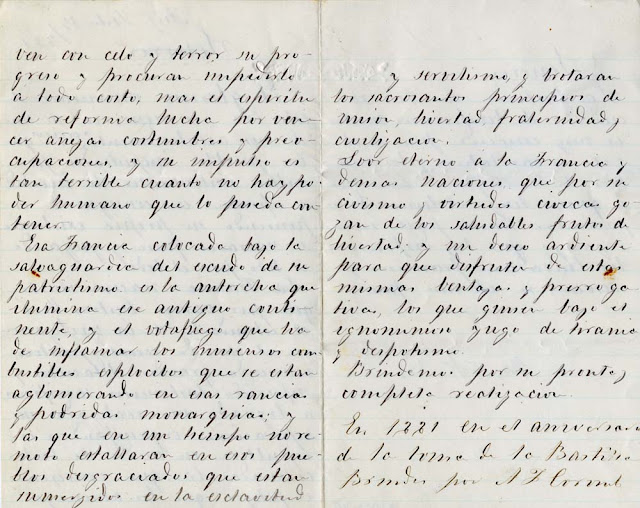 ven con celo y terror su pro-
greso y procuran impedirlo
a todo costo, mas el espiritu
de reforma lucha por ven-
cer añejas costumbres y preo-
cupaciones, y su impulso es
tan terrible cuanto no hay po-
der humano que lo pueda con
tener.
Esa Francia colocada bajo la
salvaguardia del escudo de su
patriotismo es la antorcha que
ilumina ese antiguo conti-
nente, y el botafuego que ha
de inflamar los inmensos com
bustibles esplocibos que se estan
aglomerando en esas rancias
y podridas monarquias; y
las que en un tiempo no re-
moto estallaran en esos pue-
blos desgraciados que estan
sumergidos en la esclavitud
y servilismo, y brotaran
los sacrosantos principios de
union, libertad, fraternidad y
civilizacion.
Loor eterno a la Francia y
demas naciones que por su
civismo y virtudes civicas go-
zan de los saludables frutos de
libertad: y un deseo ardiente
para que disfruten de estas
mismas ventajas y prerroga
tivas, los que gimen bajo el
ignominioso yugo de tirania
y despotismo.
Brindemos por su pronta y
completa realizacion.
En 1881 en el aniversario
de la toma de la Bastilla
Brindes por A F